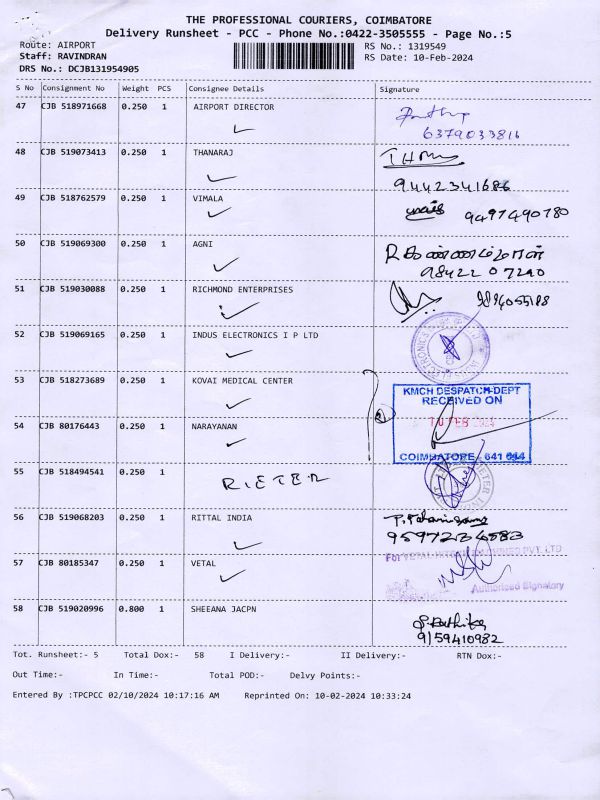 THE PROFESSIONAL COURIERS, COIMBATORE
Delivery Runsheet - PCC - Phone No.:0422-3505555 - Page No.:5
Route: AIRPORT RS No.: 1319549
Staff: RAVINDRAN RS Date: 10-Feb-2024
DRS No.: DCJB131954905
S No Consignment No Weight PCS Consignee Details Signature
47 CJB 518971668 0.250 1 AIRPORT DIRECTOR
6379033816
48 CJB 519073413 0.250 1 THANARAJ
9442341686
49 CJB 518762579 0.250 1 VIMALA
9497490780
50 CJB 519069300 0.250 1 AGNI
98422 07290
51 CJB 519030088 0.250 1 RICHMOND ENTERPRISES
52 CJB 519069165 0.250 1 INDUS ELECTRONICS I P LTD
53 CJB 518273689 0.250 1 KOVAI MEDICAL CENTER
KMCH DESPATCH-DEPT
RECEIVED ON
54 CJB 80176443 0.250 1 NARAYANAN
10 FEB 2024
COIMBATORE - 641 014
55 CJB 518494541 0.250 1 RIETER
56 CJB 519068203 0.250 1 RITTAL INDIA
57 CJB 80185347 0.250 1 VETAL
For VETAL PVT. LTD
Authorised Signatory
58 CJB 519020996 0.800 1 SHEEANA JACPN
9159410982
Tot. Runsheet:- 5 Total Dox:- 58 I Delivery:- II Delivery:- RTN Dox:-
Out Time:- In Time:- Total POD:- Delvy Points:-
Entered By :TPCPCC 02/10/2024 10:17:16 AM Reprinted On: 10-02-2024 10:33:24